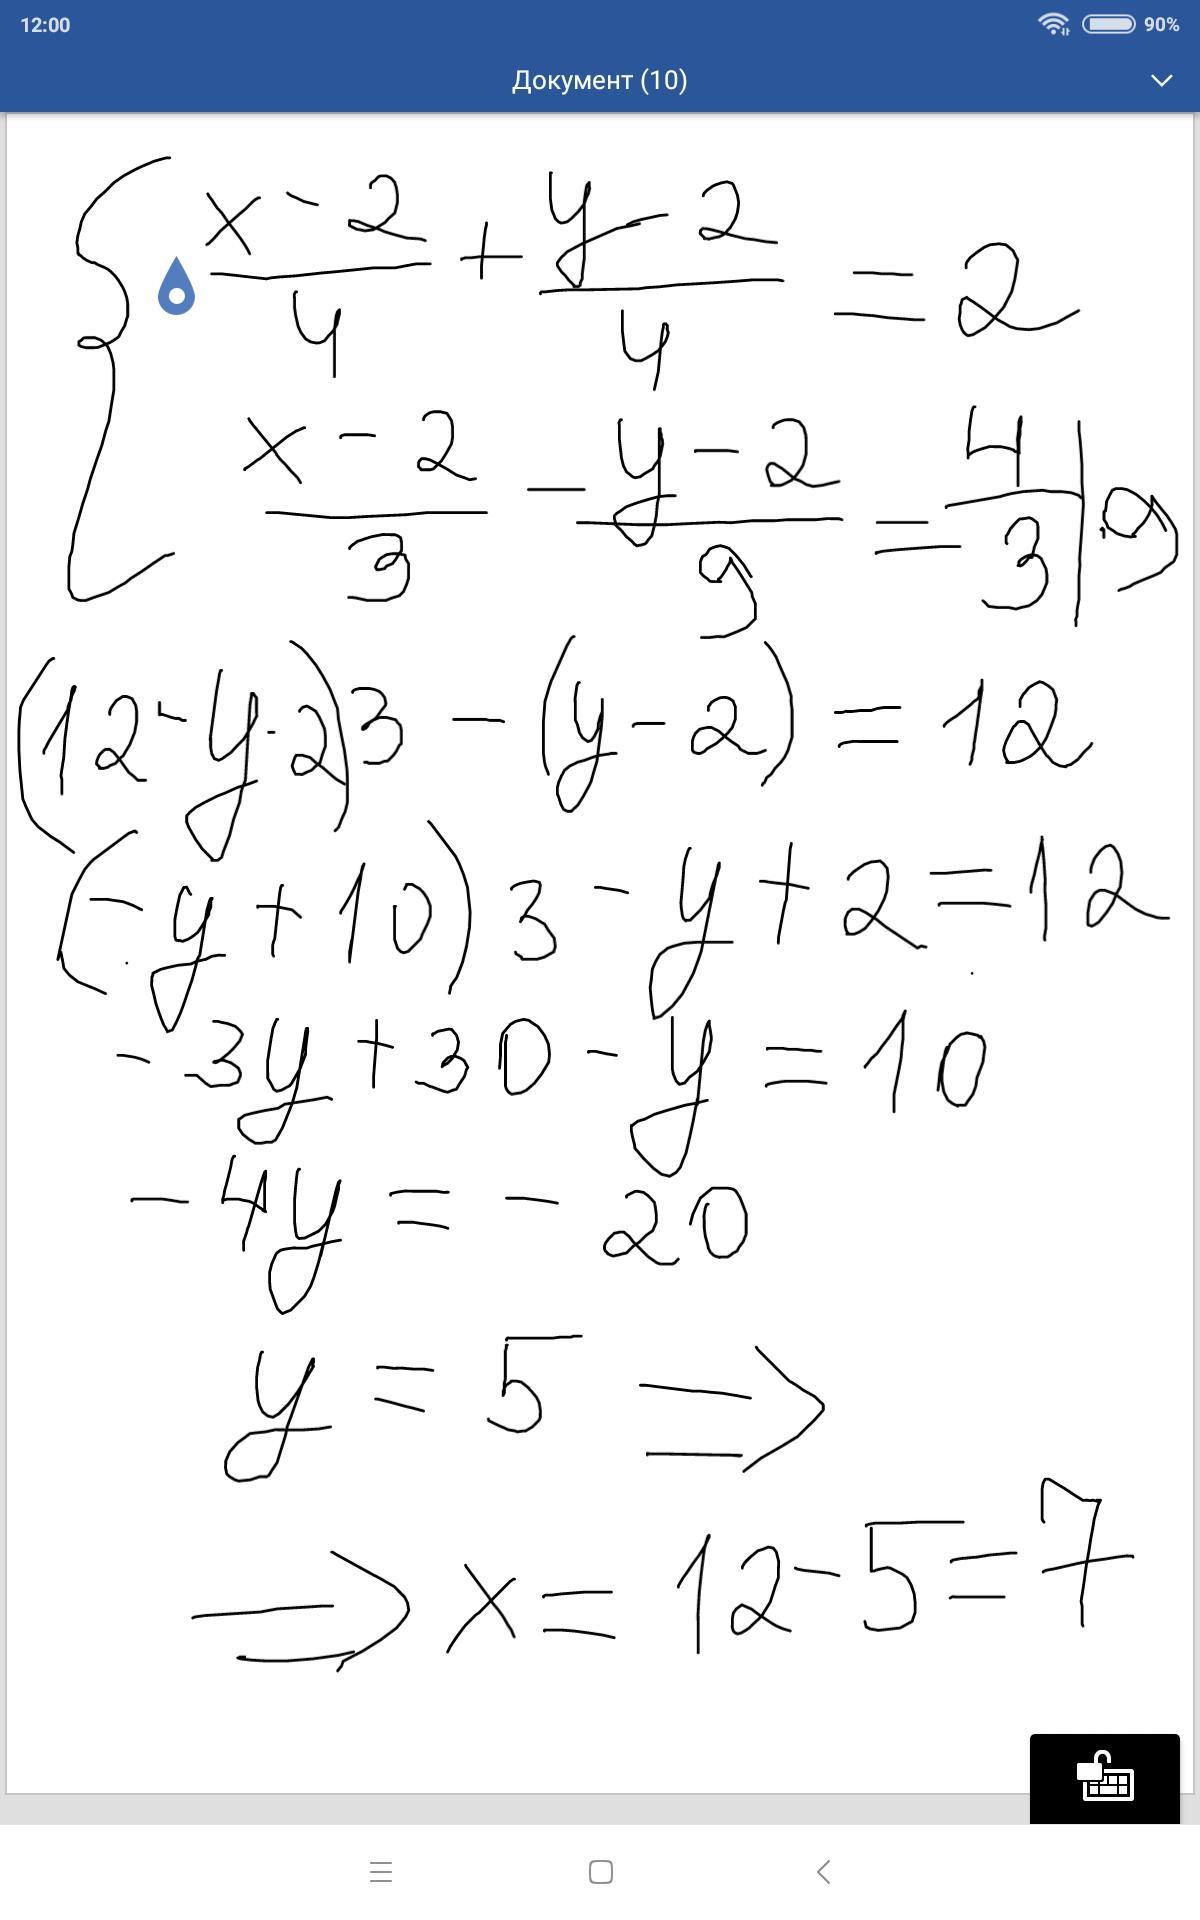 12:00 90%
Документ (10)
{ (x - 2)/4 + (y - 2)/4 = 2
(x - 2)/3 - (y - 2)/9 = 4/3 | .9
(12 - y - 2)3 - (y - 2) = 12
(-y + 10)3 - y + 2 = 12
-3y + 30 - y = 10
-4y = -20
y = 5 ⇒
⇒ x = 12 - 5 = 7